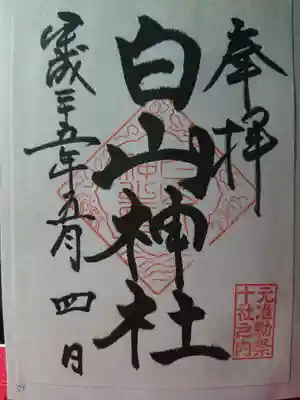 奉拝
元准勅祭
十社之内
白山神社
平成二十五年五月四日